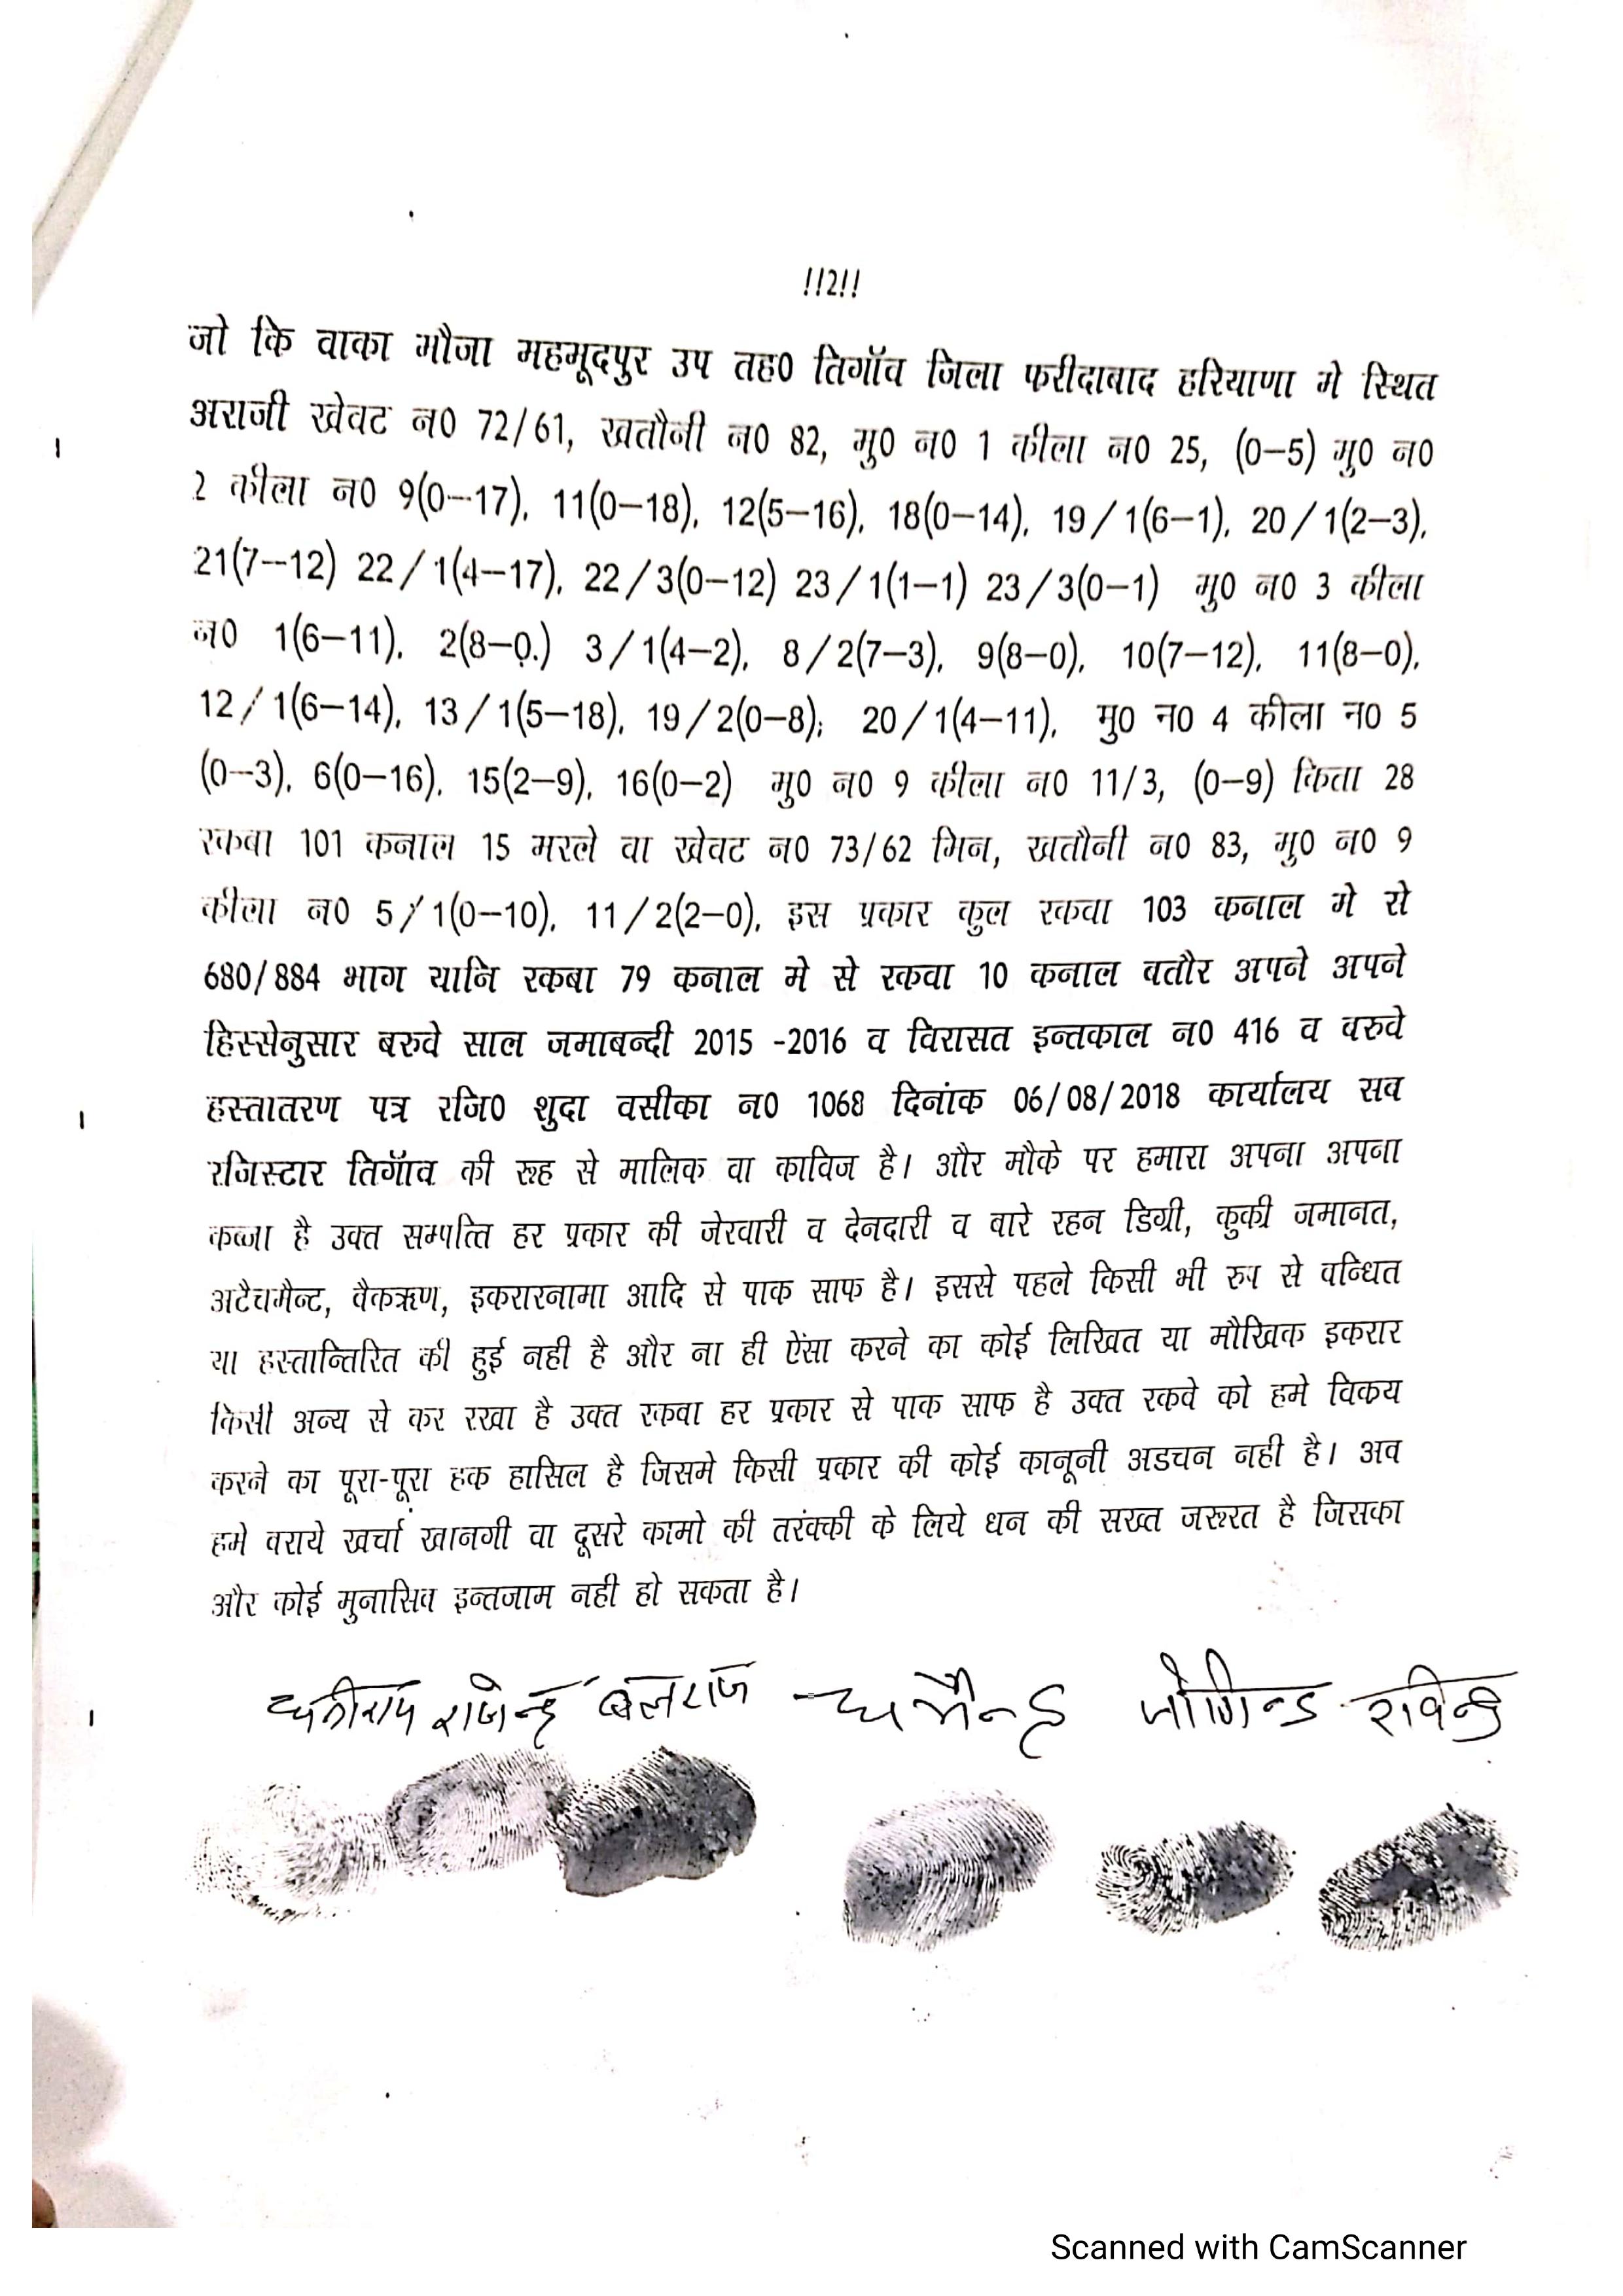 !!2!!
जो कि वाका मौजा महमूदपुर उप तह0 तिगॉव जिला फरीदाबाद हरियाणा मे स्थित
अराजी खेवट न0 72/61, खतौनी न0 82, मु0 न0 1 कीला न0 25, (0–5) मु0 न0
2 कीला न0 9(0–17), 11(0–18), 12(5–16), 18(0–14), 19/1(6–1), 20/1(2–3),
21(7–12) 22/1(4–17), 22/3(0–12) 23/1(1–1) 23/3(0–1) मु0 न0 3 कीला
न0 1(6–11), 2(8–0.) 3/1(4–2), 8/2(7–3), 9(8–0), 10(7–12), 11(8–0),
12/1(6–14), 13/1(5–18), 19/2(0–8); 20/1(4–11), मु0 न0 4 कीला न0 5
(0–3), 6(0–16), 15(2–9), 16(0–2) मु0 न0 9 कीला न0 11/3, (0–9) किता 28
रकवा 101 कनाल 15 मरले वा खेवट न0 73/62 मिन, खतौनी न0 83, मु0 न0 9
कीला न0 5/1(0–10), 11/2(2–0), इस प्रकार कुल रकवा 103 कनाल मे से
680/884 भाग यानि रकबा 79 कनाल मे से रकवा 10 कनाल बतौर अपने अपने
हिस्सेनुसार बरुवे साल जमाबन्दी 2015 -2016 व विरासत इन्तकाल न0 416 व वरुवे
हस्तातरण पत्र रजि0 शुदा वसीका न0 1068 दिनांक 06/08/2018 कार्यालय सव
रजिस्टार तिगॅाव की रूह से मालिक वा काविज है। और मौके पर हमारा अपना अपना
कब्जा है उक्त सम्पत्ति हर प्रकार की जेरवारी व देनदारी व बारे रहन डिग्री, कुकी जमानत,
अटैचमैन्ट, वैकऋण, इकरारनामा आदि से पाक साफ है। इससे पहले किसी भी रुप से वन्धित
या हस्तान्तिरित की हुई नही है और ना ही ऐंसा करने का कोई लिखित या मौखिक इकरार
किसी अन्य से कर रखा है उक्त रकवा हर प्रकार से पाक साफ है उक्त रकवे को हमे विकय
करने का पूरा-पूरा हक हासिल है जिसमे किसी प्रकार की कोई कानूनी अडचन नही है। अव
हमे वराये खर्चा खानगी वा दूसरे कामो की तरंक्की के लिये धन की सख्त जरूरत है जिसका
और कोई मुनासिव इन्तजाम नही हो सकता है।
राजेन्द्र बलराज धर्मेन्द्र जोगिन्द्र रविन्द्र
Scanned with CamScanner